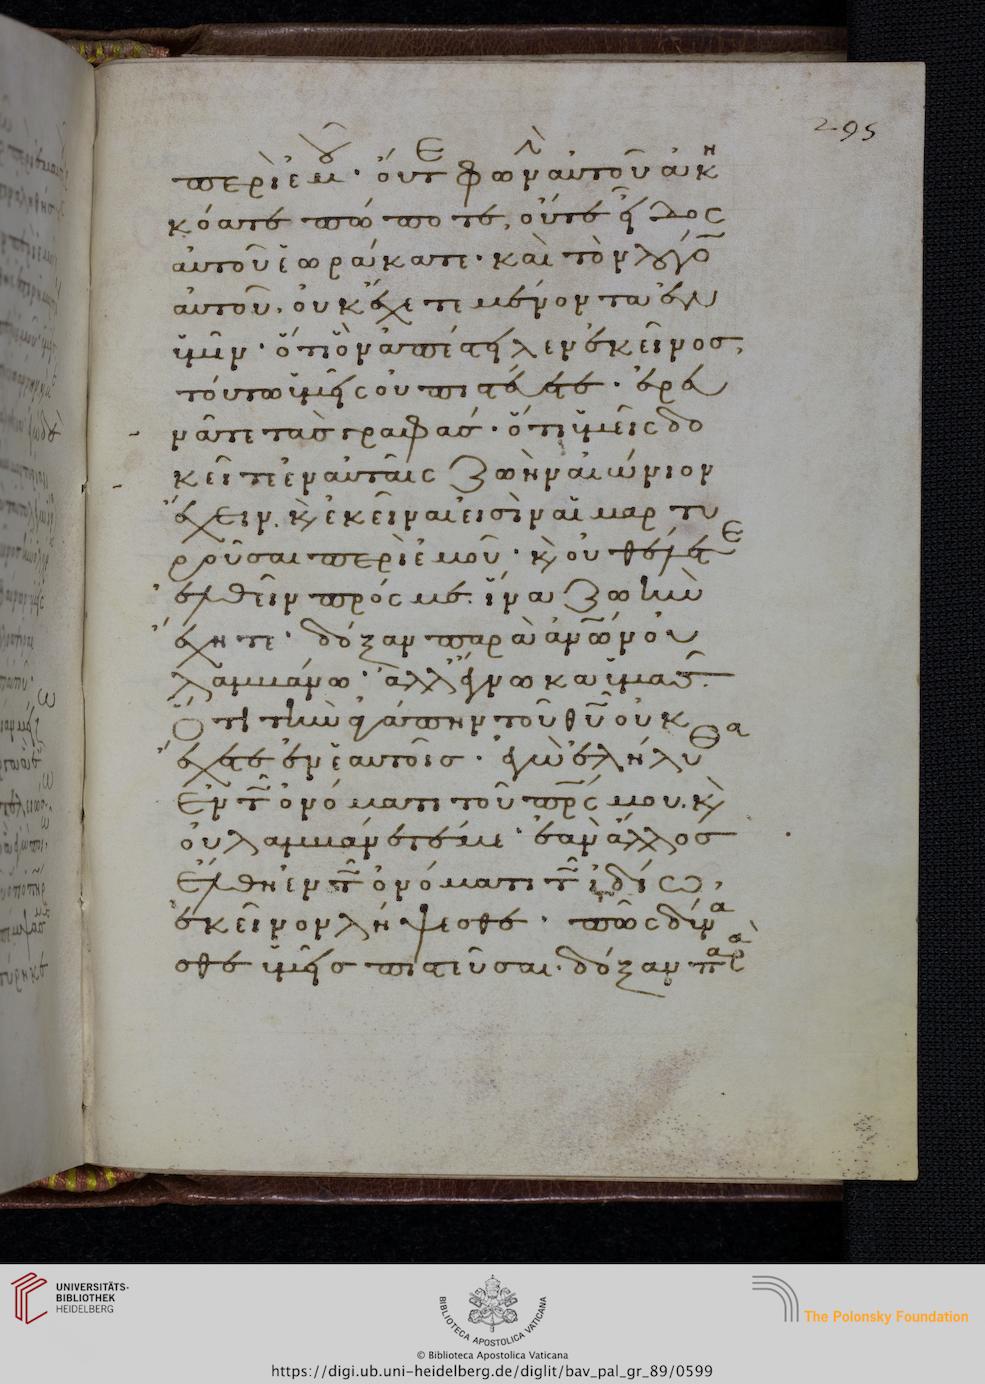 295
περὶ ἐμου· οὔτε φωνὴν αὐτοῦ ἀκη
κόατε πώποτε, οὔτε εἶδος
αὐτοῦ ἑωράκατε· καὶ τὸν λόγον
αὐτοῦ, οὐκ ἔχετε μένοντα ἐν
ὑμῖν· ὅτι ὃν ἀπέστειλεν ἐκεῖνος,
τούτω ὑμεῖς οὐ πιστεύετε· ἐρευ
νᾶτε τὰς γραφάς· ὅτι ὑμεῖς δο
κεῖτε ἐν αὐταῖς ζωὴν αἰώνιον
ἔχειν. κ̀ ἐκεῖναι εἰσὶν αἱ μαρτυ
ροῦσαι περὶ ἐμοῦ· κ̀ οὐ θέλετε
ἐλθεῖν πρός με. ἵνα ζωὴν
ἔχητε· δόξαν παρὰ ἀνων οὐ
λαμβάνω· ἀλλ' ἔγνωκα ὑμᾶς.
Ὅτι τὴν ἀγάπην τοῦ θυ οὐκ
ἔχετε ἐν ἑαυτοῖς· ἐγὼ ἐλήλυθα
Ἐν τῶ ὀνόματι τοῦ πρς μου. κ̀
οὐ λαμβάνετέ με· ἐὰν ἄλλος
Ἔλθη ἐν τῶ ὀνόματι τῶ ἰδίω,
ἐκεῖνον λήψεσθε· πῶς δύνα
σθε ὑμεῖς πιστεῦσαι· δόξαν παρὰ
UNIVERSITÄTS-
BIBLIOTHEK
HEIDELBERG
BIBLIOTECA APOSTOLICA VATICANA
The Polonsky Foundation
© Biblioteca Apostolica Vaticana
https://digi.ub.uni-heidelberg.de/diglit/bav_pal_gr_89/0599